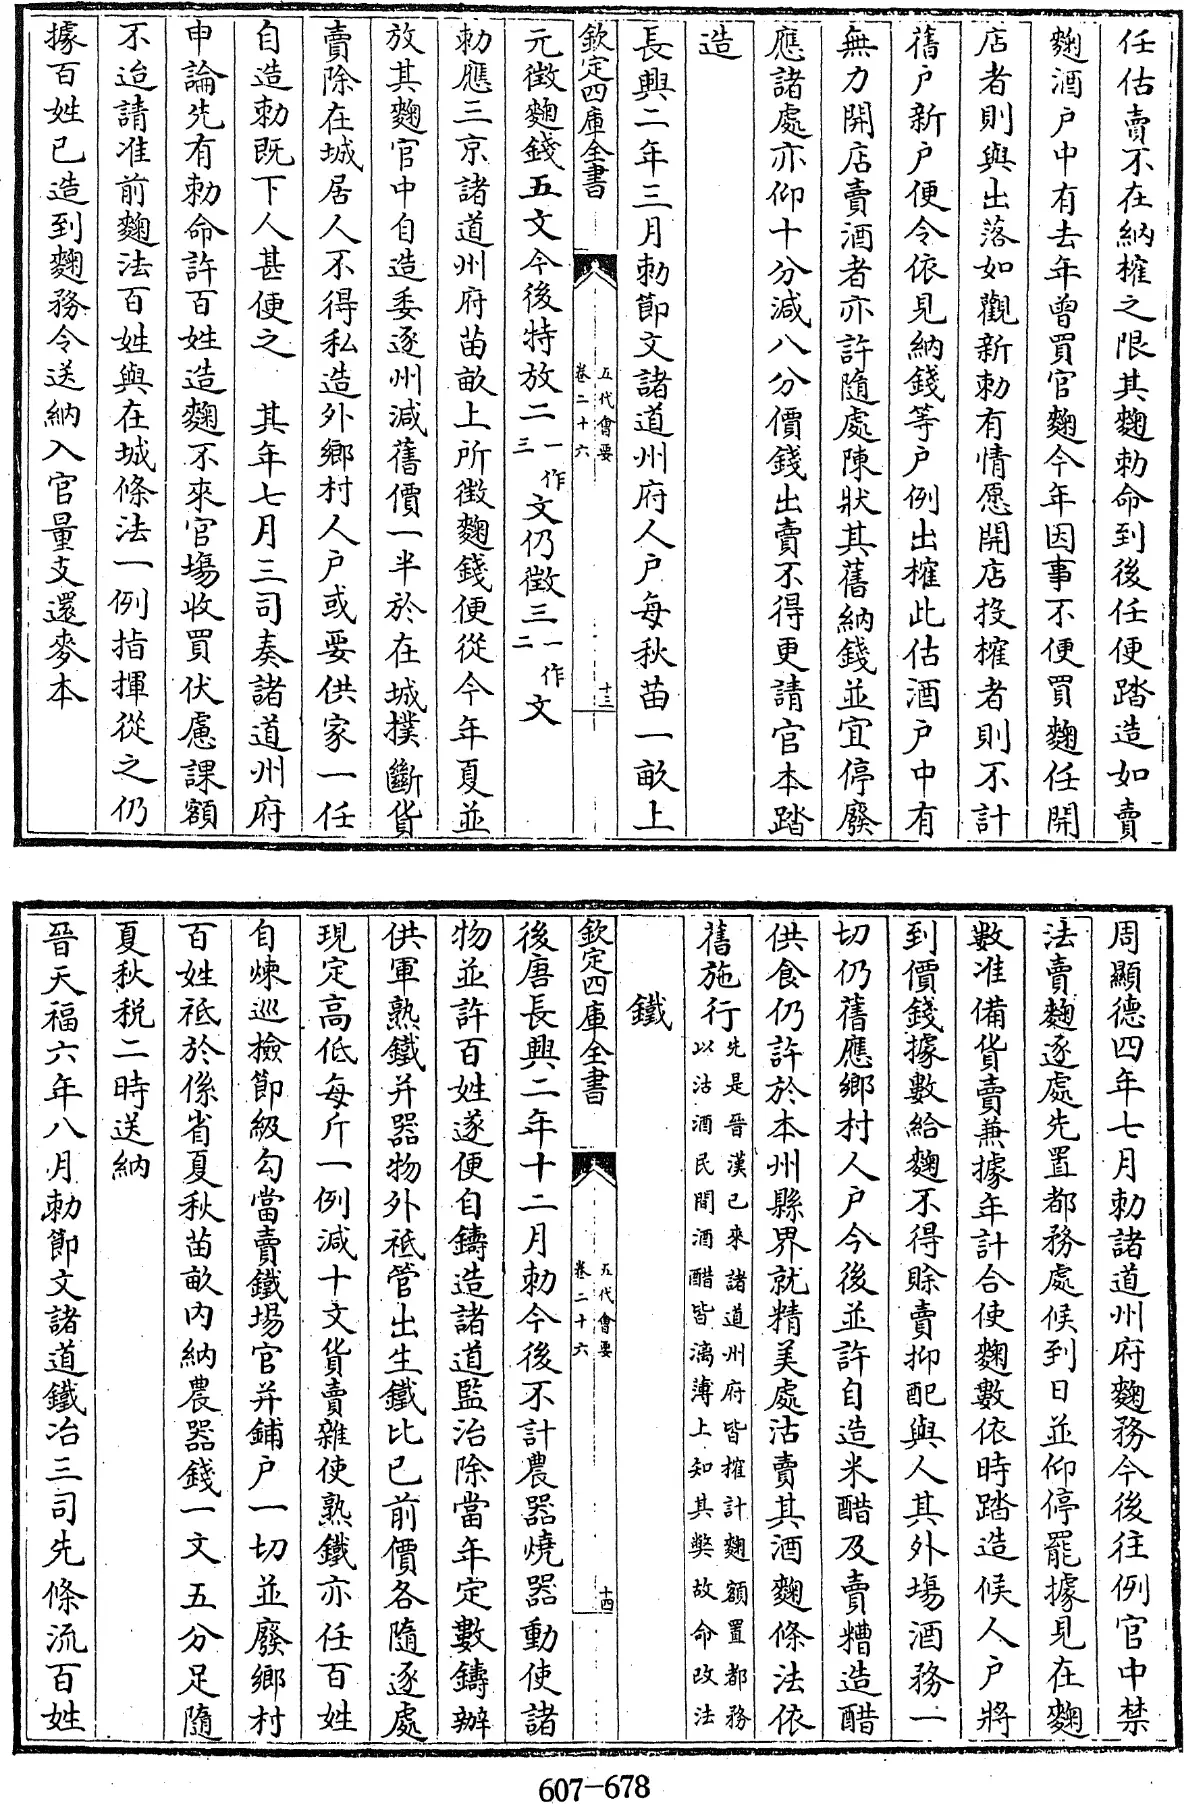 任估賣不在納榷之限其麴勅命到後任便踏造如賣
麴酒户中有去年曾買官麴今年因事不便買麴任開
店者則與出落如觀新勅有情愿開店投榷者則不計
舊户新户便令依見納錢等户例出榷此估酒户中有
無力開店賣酒者亦許隨處陳狀其舊納錢並宜停廢
應諸處亦仰十分減八分價錢出賣不得更請官本踏
造
長興二年三月勅節文諸道州府人户每秋苗一畝上
欽定四庫全書
五代會要
卷二十六
十三
元徵麴錢五文今後特放二一作三文仍徵三一作二文
勅應三京諸道州府苗畝上所徵麴錢便從今年夏並
放其麴官中自造委逐州減舊價一半於在城撲斷貨
賣除在城居人不得私造外鄉村人户或要供家一任
自造勅既下人甚便之 其年七月三司奏諸道州府
申論先有勅命許百姓造麴不來官場收買伏慮課額
不迨請准前麴法百姓與在城條法一例指揮從之仍
據百姓已造到麴務令送納入官量支還麥本
周顯德四年七月勅諸道州府麴務今後往例官中禁
法賣麴逐處先置都務處候到日並仰停罷據見在麴
數准備貨賣兼據年計合使麴數依時踏造候人户將
到價錢據數給麴不得賒賣抑配與人其外場酒務一
切仍舊應鄉村人户今後並許自造米醋及賣糟造醋
供食仍許於本州縣界就精美處沽賣其酒麴條法依
舊施行先是晉漢已來諸道州府皆榷計麴額置都務
以沽酒民間酒醋皆漓薄上知其獘故命改法
鐵
欽定四庫全書
五代會要
卷二十六
十四
後唐長興二年十二月勅今後不計農器燒器動使諸
物並許百姓遂便自鑄造諸道監冶除當年定數鑄辦
供軍熟鐵并器物外祗管出生鐵比已前價各隨逐處
現定高低每斤一例減十文貨賣雜使熟鐵亦任百姓
自煉巡檢節級勾當賣鐵場官并鋪户一切並廢鄉村
百姓祗於係省夏秋苗畝內納農器錢一文五分足隨
夏秋税二時送納
晉天福六年八月勅節文諸道鐵冶三司先條流百姓
607-678